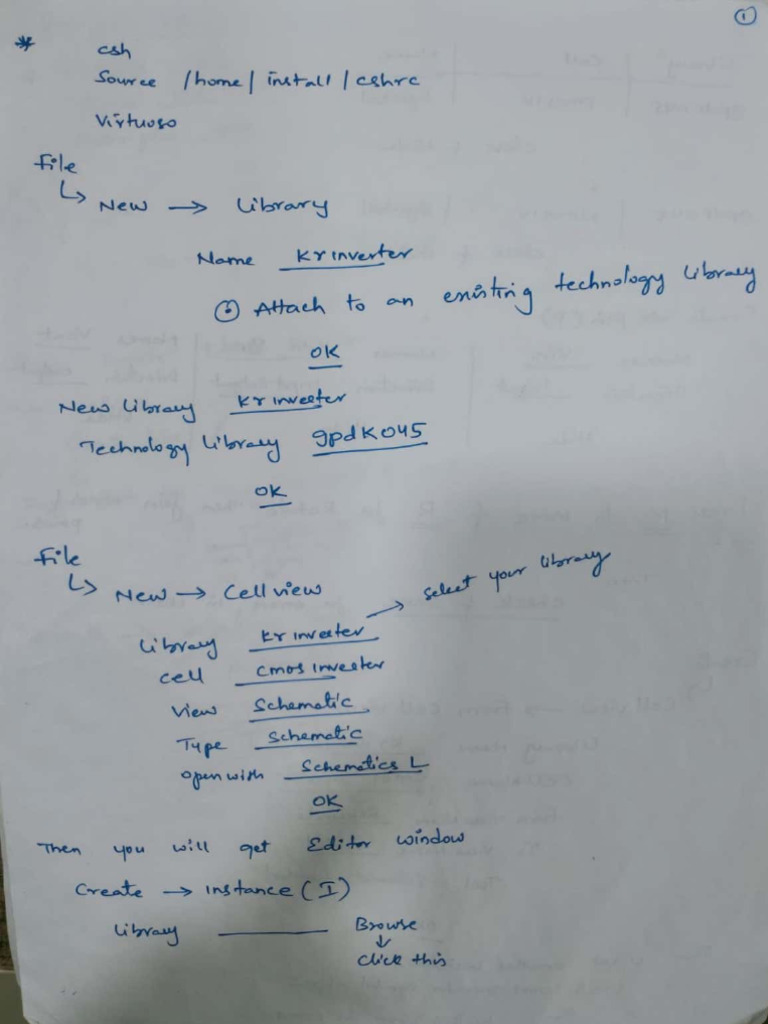 ①
* csh
Source /home/install/cshrc
Virtuoso
File
↳ New → Library
Name Krinverter
⊙ Attach to an existing technology Library
OK
New Library Krinverter
Technology Library gpdk045
OK
File
↳ New → Cell view
Library Krinverter → Select your library
Cell Cmos inverter
View Schematic
Type Schematic
Open with Schematics L
OK
Then you will get Editor window
Create → instance (I)
Library ______ Browse
↓
Click this